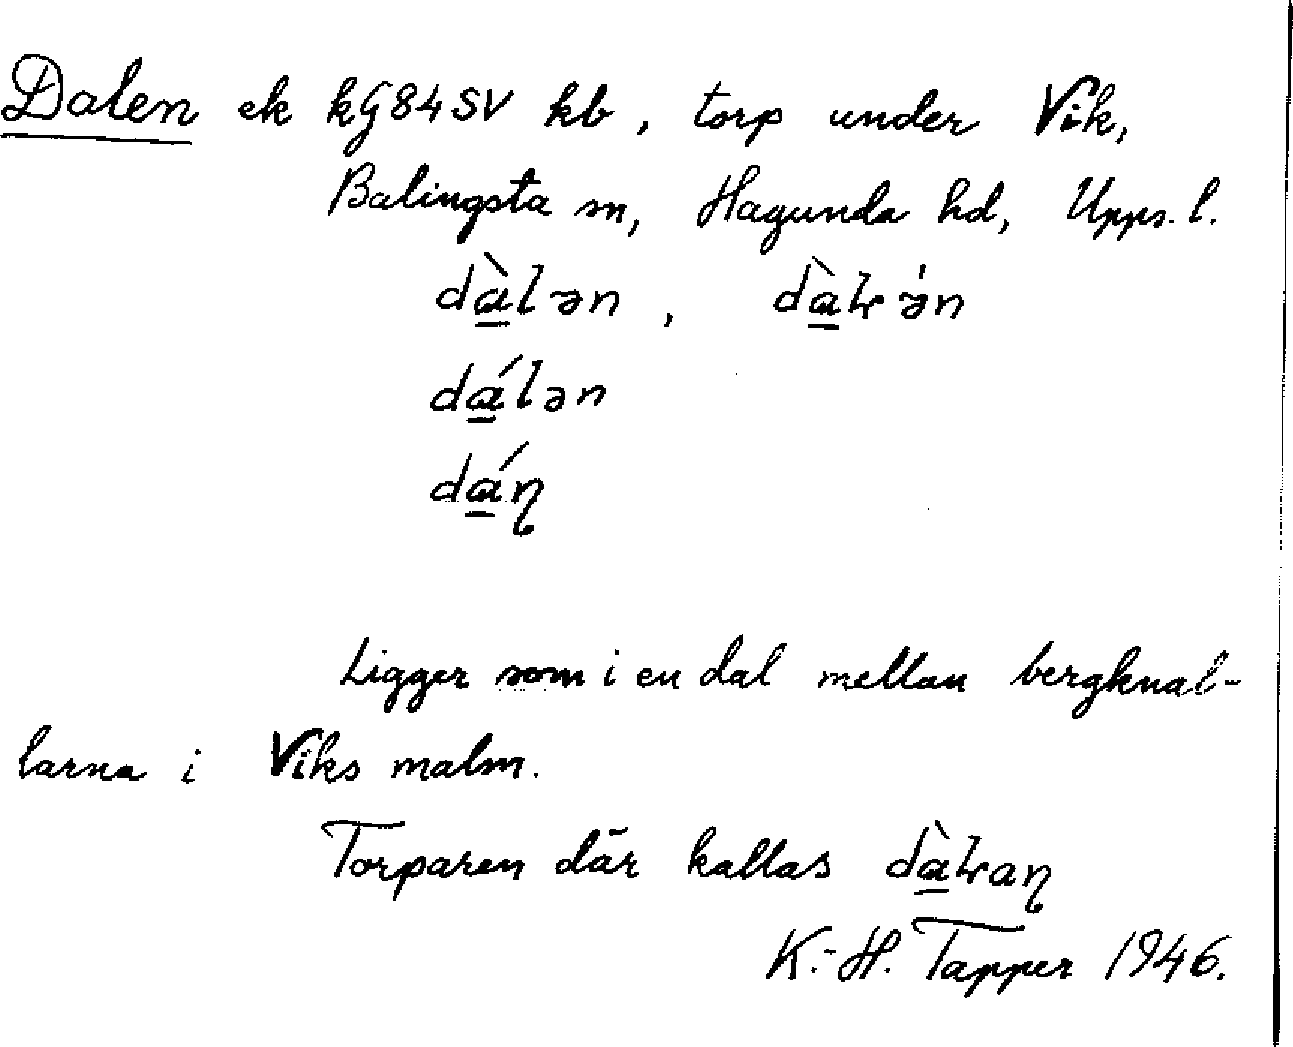 Dalen ek kG84SV kb, torp under Vik,
Balingsta sn, Hagunda hd, Upps. l.
dɑ̱̀lən, dɑ̱̀ɽə̍n
dɑ̱́lən
dɑ̱́ɳ
Ligger som i en dal mellan bergknal-
larna i Viks malm.
Torparen där kallas dɑ̱̀ɽaɳ
K.-H. Tapper 1946.